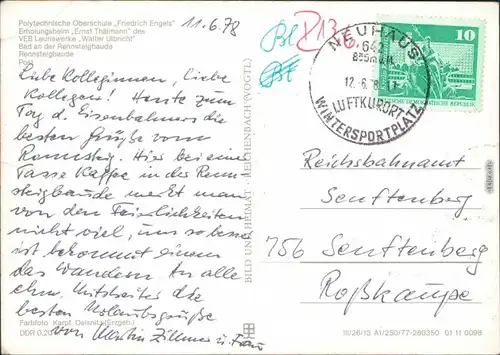 Polytechnische Oberschule „Friedrich Engels"
Erholungsheim „Ernst Thälmann" des
VEB Leunawerke „Walter Ulbricht"
Bad an der Rennsteigbaude
Rennsteigbaude
Post
11.6.78
Liebe Kolleginnen, liebe
Kollegen! Heute zum
Tag d. Eisenbahners die
besten Grüße vom
Rennsteig. Hier bei einer
Tasse Kaffee in der Renn-
steigbaude merkt man
von den Feierlichkeiten
nicht viel, um so besser
ist bekommt einem
das Wandern. An alle
ehm. Mitstreiter die
besten Urlaubsgrüße
von Martin Zillmer u. Frau
Farbfoto: Karpf, Oelsnitz (Erzgeb.)
DDR 0,20
BILD UND HEIMAT · REICHENBACH (VOGTL)
NEUHAUS
642
835m ü.M.
12.-6.78
LUFTKURORT
WINTERSPORTPLATZ
10
DEUTSCHE DEMOKRATISCHE REPUBLIK
Reichsbahnamt
Senftenberg
756 Senftenberg
Roßkaupe
III/26/13 A1/250/77-260350 01 11 0098